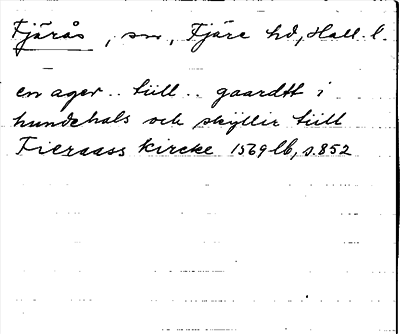 Fjärås, sn, Fjäre hd, Hall. l.
en ager .. tiill .. gaardtt i
hundehals och skyllir tiill
Fieraass kircke 1569 lb, s. 852